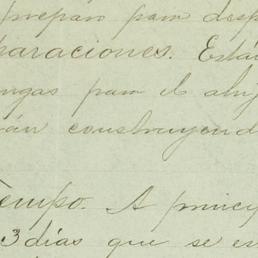 preparan para desp
paraciones. Está
ngas para el abri
rán construyend
Tiempo. A princip
3 días que se en